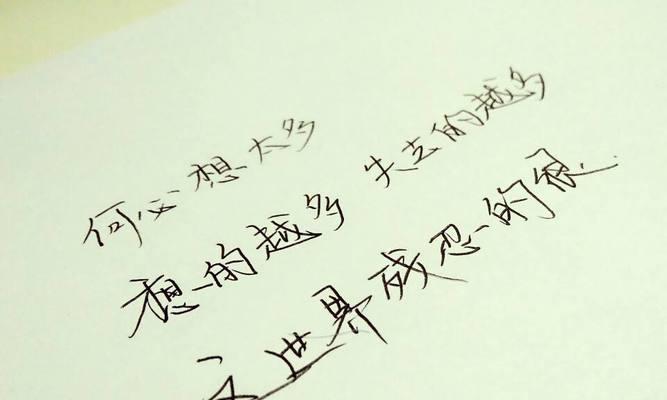 何必想太多
想的越多 失去的越多
这世界残忍的很..